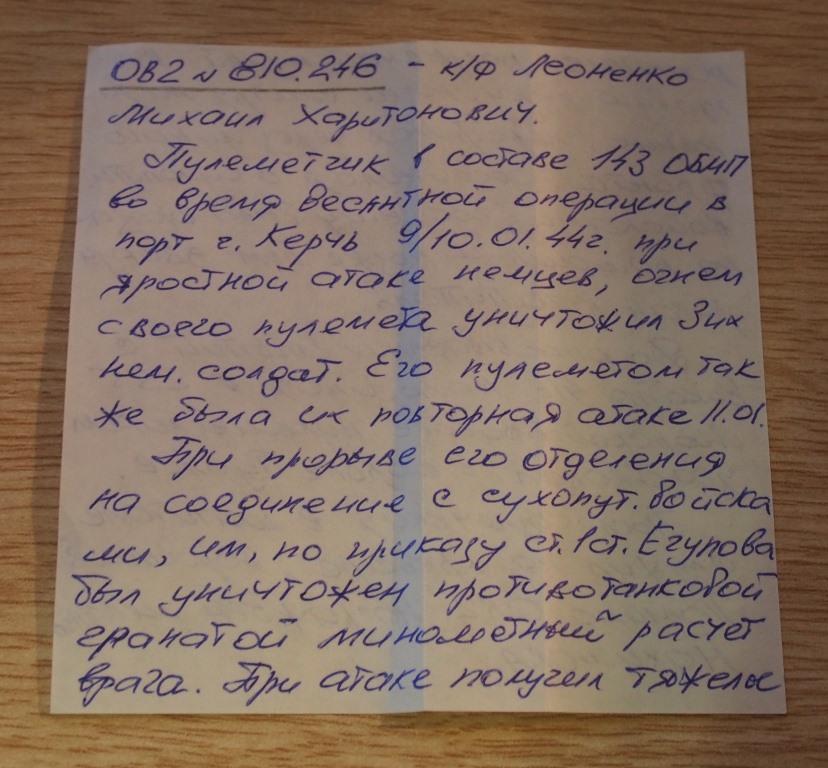 ОВ2 № 810.246 - к/ф Леоненко
Михаил Харитонович.
Пулеметчик в составе 143 ОБМП
во время десантной операции в
порт г. Керчь 9/10.01.44г. при
яростной атаке немцев, огнем
своего пулемета уничтожил 3их
нем. солдат. Его пулеметом так
же была их повторная атаке 11.01.
При прорыве его отделения
на соединение с сухопут. войска
ми, им, по приказу ст.1ст. Егупова
был уничтожен противотанковой
гранатой минометный расчет
врага. При атаке получил тяжелые